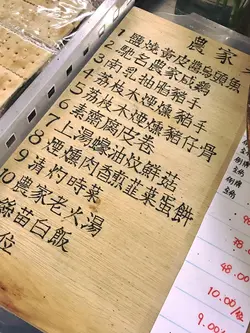 農家
1 鹽焗黃皮農烏頭蛋
2 馳名農家咸鷄
3 南乳抽脂豬手
4 荔枝木煙燻豬手
5 荔枝木煙燻豬仔骨
6 素齋腐皮卷
7 上湯蠔油炆鮮菇
8 煙燻肉香煎韮菜蛋餅
9 清灼時菜
10 農家老火湯
絲苗白飯
位
48.00
10.00/位
9.00